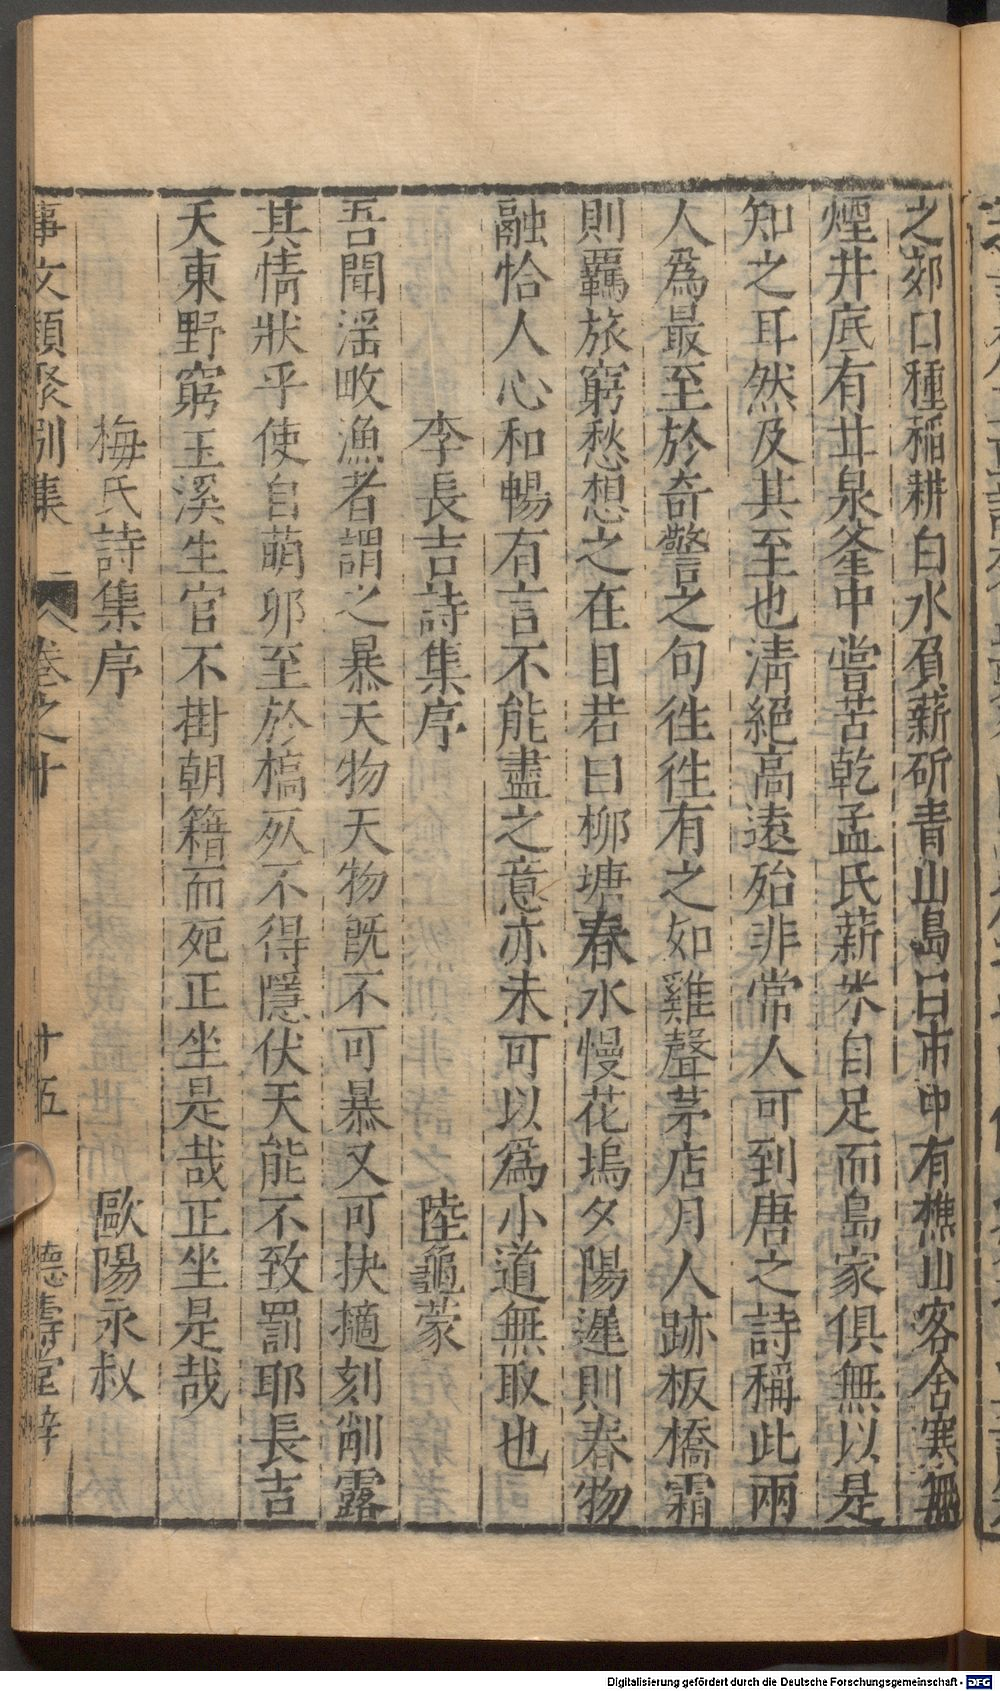 之郊曰種稲耕白水負薪斫青山島曰市中有樵山客舍寒無
煙井底有甘泉釜中嘗苦乾孟氏薪米自足而島家俱無以是
知之耳然及其至也清絕高遠殆非常人可到唐之詩稱此兩
人爲最至於奇警之句徃徃有之如雞聲茅店月人跡板橋霜
則羈旅窮愁想之在目若曰柳塘春水慢花塢夕陽遲則春物
融恰人心和暢有言不能盡之意亦未可以爲小道無取也
李長吉詩集序　陸龜蒙
吾聞滛畋漁者謂之暴天物天物旣不可暴又可抉擿刻削露
其情狀乎使自萌卵至於槁死不得隱伏天能不致罰耶長吉
夭東野窮玉溪生官不掛朝籍而死正坐是哉正坐是哉
梅氏詩集序　歐陽永叔
事文類聚別集　卷之十　十五　德壽堂梓
Digitalisierung gefördert durch die Deutsche Forschungsgemeinschaft - DFG